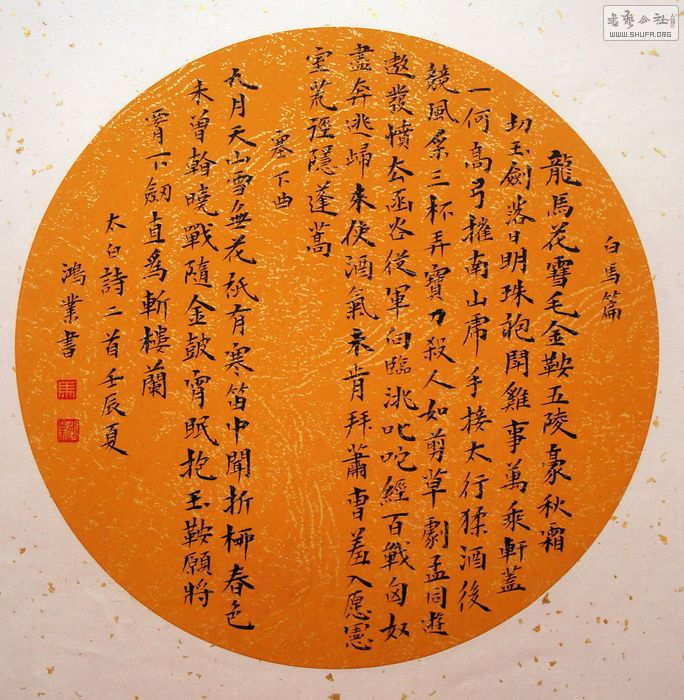 白馬篇
龍馬花雪毛金鞍五陵豪秋霜
切玉劍落日明珠袍鬥雞事萬乘軒蓋
一何高弓摧南山虎手接太行猱酒後
競風采三杯弄寶刀殺人如剪草劇孟同遊
遨發憤去函谷從軍向臨洮叱咤經百戰匈奴
盡奔逃歸來使酒氣未肯拜蕭曹羞入愿憲
室荒徑隱蓬蒿
塞下曲
五月天山雪無花祇有寒笛中聞折柳春色
未曾曉戰隨金鼓宵眠抱玉鞍願將
腰下劍直為斬樓蘭
太白詩二首壬辰夏
鴻業書
书艺公社
WWW.SHUFA.ORG